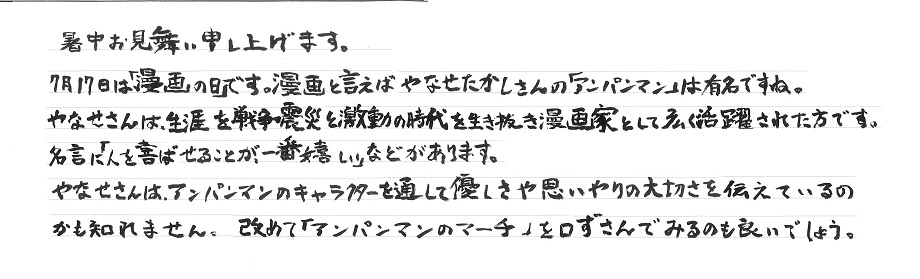 暑中お見舞い申し上げます。
7月17日は「漫画」の日」です。漫画と言えばやなせたかしさんの「アンパンマン」は有名ですね。
やなせさんは、生涯を戦争震災と激動の時代を生き抜き漫画家として広く活躍された方です。
名言に「人を喜ばせることが、一番嬉しい」などがあります。
やなせさんは、アンパンマンのキャラクターを通して優しさや思いやりの大切さを伝えているの
かも知れません。改めて「アンパンマンのマーチ」を口ずさんでみるのも良いでしょう。